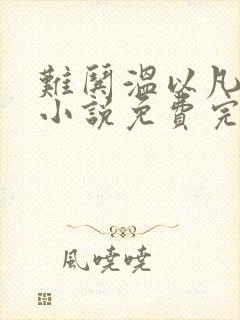 難鬨溫以凡
小說免費完
風嘵嘵